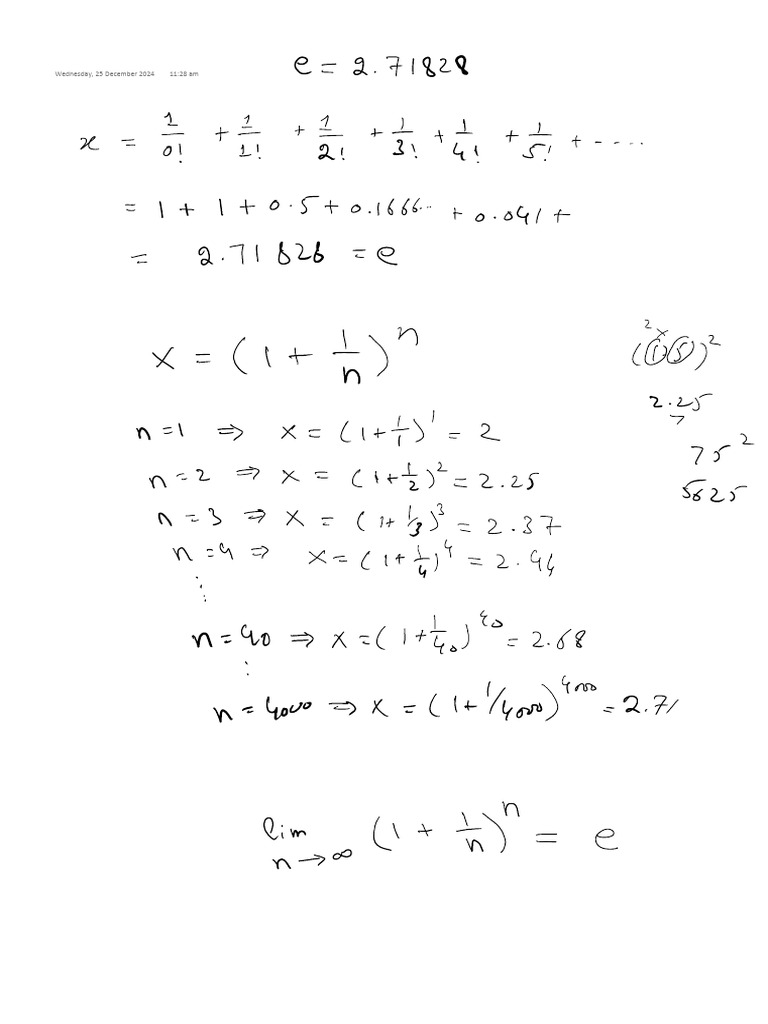 Wednesday, 25 December 2024 11:28 am
e = 2.71828
x = 1/0! + 1/1! + 1/2! + 1/3! + 1/4! + 1/5! + ----
= 1 + 1 + 0.5 + 0.1666.. + 0.041 +
= 2.71828 = e
x = (1 + 1/n)^n
n=1 ⇒ x = (1+1/1)^1 = 2
n=2 ⇒ x = (1+1/2)^2 = 2.25
n=3 ⇒ x = (1+1/3)^3 = 2.37
n=4 ⇒ x = (1+1/4)^4 = 2.44
⋮
n=40 ⇒ x = (1+1/40)^40 = 2.68
⋮
n=4000 ⇒ x = (1+1/4000)^4000 = 2.71
lim n→∞ (1 + 1/n)^n = e
2x
(15)^2
2.25
75^2
5625